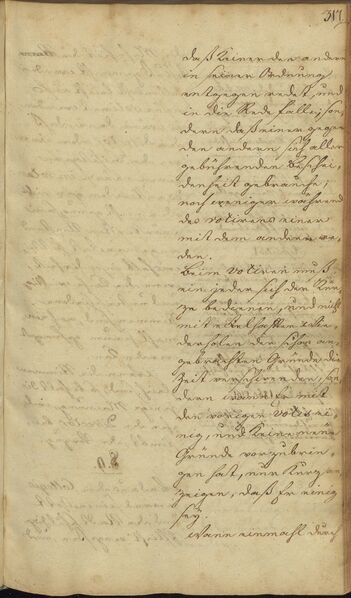 317
daß Keiner den andern
in seiner Ordnung
entgegen redet, und
in die Rede falle, son,
dern daß einer gegen
den andern sich aller
gebührenden Beschei,
denheit gebrauche,
noch weniger während
des votirens einer
mit dem andern re,
den.
Beim votiren muß
ein jeder sich der Kür,
ze bedienen, und nicht
mit wie,
derholen der schon an,
gebrachten Gründe die
Zeit verlieren, son,
dern wenn er mit
den vorigen Votis ei,
nig, und Keine neue
Gründe vorzubrin,
gen hat, nur Kurz an,
zeigen, daß Er einig
sey.
Wann einmahl durch